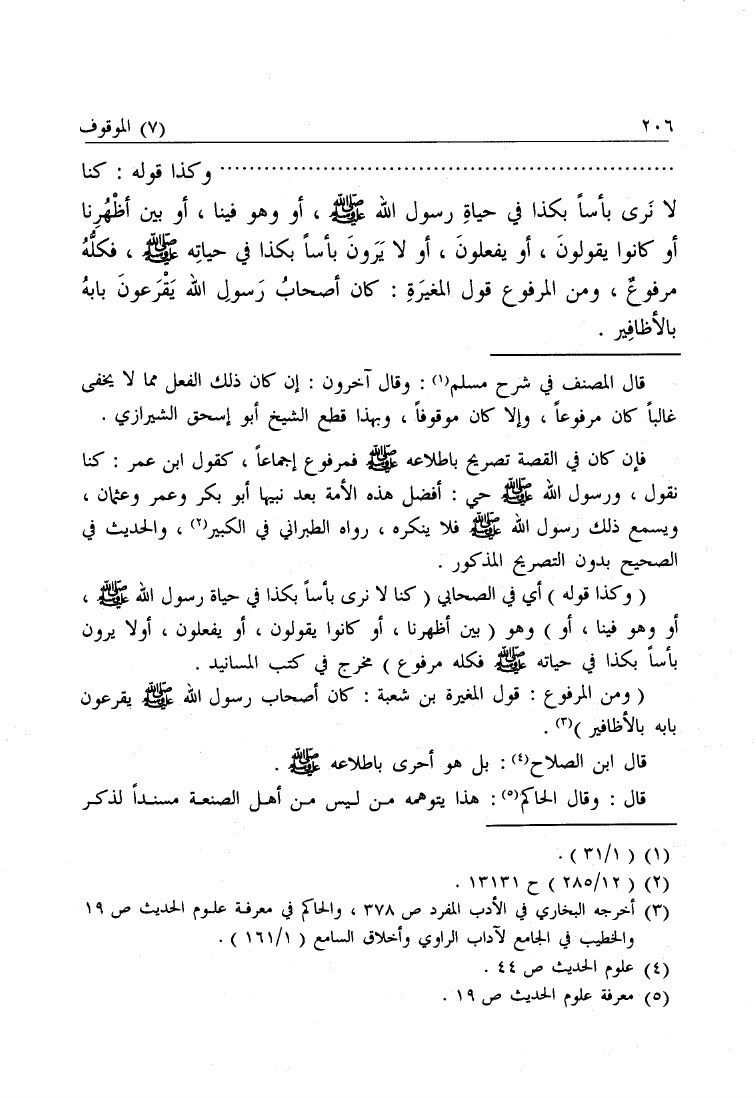 ٢٠٦ (٧) الموقوف
.......................................................... وكذا قوله : كنا
لا نَرى بأساً بكذا في حياةِ رسول الله ﷺ ، أو وهو فينا ، أو بين أظْهُرِنا
أو كانوا يقولونَ ، أو يفعلونَ ، أو لا يَرَونَ بأساً بكذا في حياتِه ﷺ ، فكلُّهُ
مرفوعٌ ، ومن المرفوع قول المغيرَةِ : كان أصحابُ رَسولِ الله يَقْرَعونَ بابهُ
بالأظافِير .
قال المصنف في شرح مسلم(١) : وقال آخرون : إن كان ذلك الفعل مما لا يخفى
غالباً كان مرفوعاً ، وإلا كان موقوفاً ، وبهذا قطع الشيخ أبو إسحق الشيرازي .
فإن كان في القصة تصريح باطلاعه ﷺ فمرفوع إجماعاً ، كقول ابن عمر : كنا
نقول ، ورسول الله ﷺ حي : أفضل هذه الأمة بعد نبيها أبو بكر وعمر وعثمان ،
ويسمع ذلك رسول الله ﷺ فلا ينكره ، رواه الطبراني في الكبير(٢) ، والحديث في
الصحيح بدون التصريح المذكور .
( وكذا قوله ) أي في الصحابي ( كنا لا نرى بأساً بكذا في حياة رسول الله ﷺ ،
أو وهو فينا ، أو ) وهو ( بين أظهرنا ، أو كانوا يقولون ، أو يفعلون ، أولا يرون
بأساً بكذا في حياته ﷺ فكله مرفوع ) مخرج في كتب المسانيد .
( ومن المرفوع : قول المغيرة بن شعبة : كان أصحاب رسول الله ﷺ يقرعون
بابه بالأظافير )(٣) .
قال ابن الصلاح(٤) : بل هو أحرى باطلاعه ﷺ .
قال : وقال الحاكم(٥) : هذا يتوهمه من ليس من أهل الصنعة مسنداً لذكر
(١) ( ٣١/١ ) .
(٢) ( ٢٨٥/١٢ ) ح ١٣١٣١ .
(٣) أخرجه البخاري في الأدب المفرد ص ٣٧٨ ، والحاكم في معرفة علوم الحديث ص ١٩
والخطيب في الجامع لآداب الراوي وأخلاق السامع ( ١٦١/١ ) .
(٤) علوم الحديث ص ٤٤ .
(٥) معرفة علوم الحديث ص ١٩ .